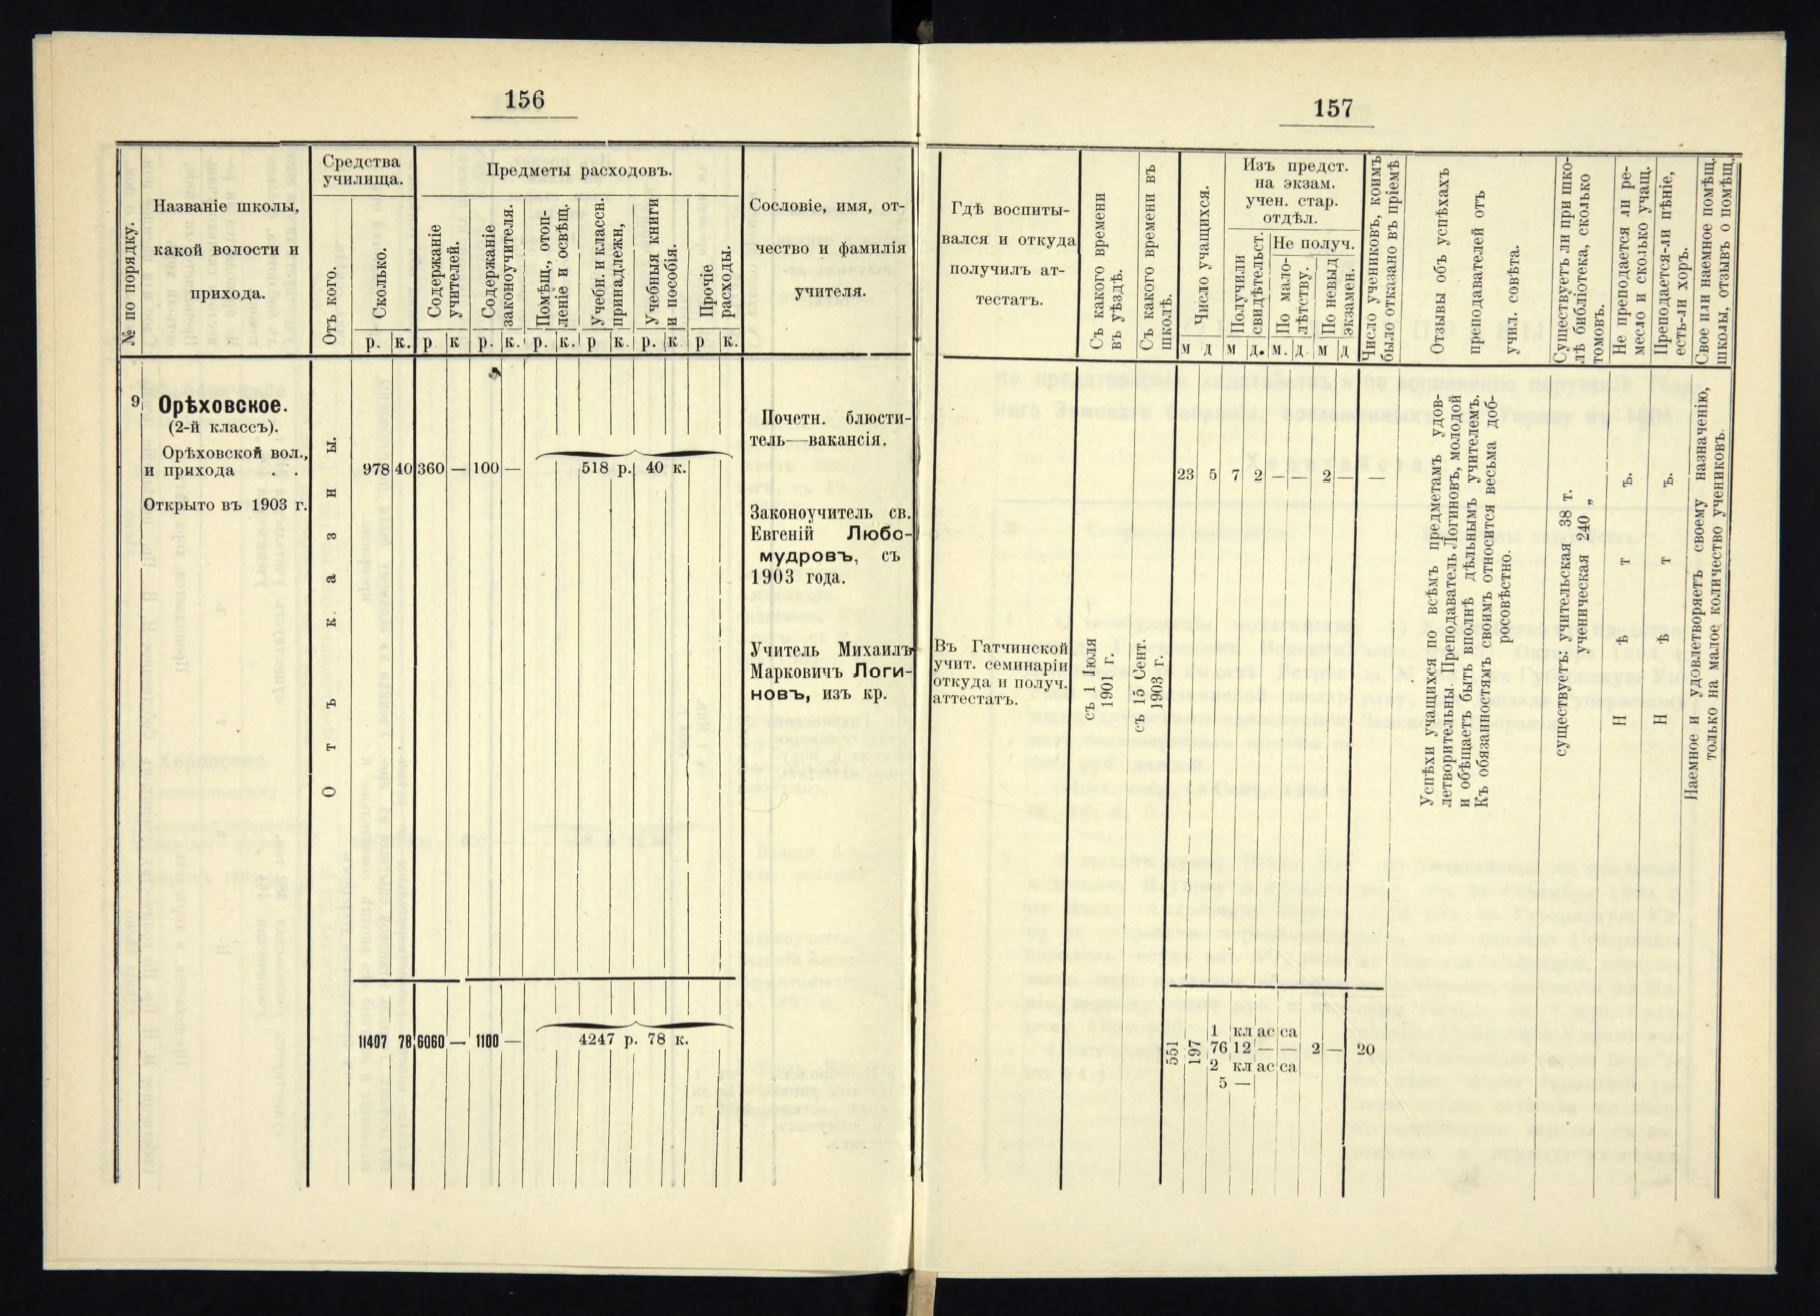 156
№ по порядку.
Названіе школы,
какой волости и
прихода.
Средства
училища.
Отъ кого.
Сколько.
р. к.
Предметы расходовъ.
Содержаніе
учителей.
р к
Содержаніе
законоучителя.
р. к.
Помѣщ., отоп-
леніе и освѣщ.
р. к.
Учебн. и классн.
принадлежн,
р к.
Учебныя книги
и пособія.
р. к
Прочіе
расходы.
р к.
Сословіе, имя, от-
чество и фамилія
учителя.
9
Орѣховское.
(2-й классъ).
Орѣховской вол.,
и прихода . .
Открыто въ 1903 г.
Отъ казны.
978 40 360 — 100 — 518 р. 40 к.
Почетн. блюсти-
тель—вакансія.
Законоучитель св.
Евгеній Любо-
мудровъ, съ
1903 года.
Учитель Михаилъ
Марковичъ Логи-
новъ, изъ кр.
11407 78 6060 — 1100 — 4247 р. 78 к.
157
Гдѣ воспиты-
вался и откуда
получилъ ат-
тестатъ.
Съ какого времени
въ уѣздѣ.
Съ какого времени въ
школѣ.
Число учащихся.
м д
Изъ предст.
на экзам.
учен. стар.
отдѣл.
Получили
свидѣтельст.
м д.
Не получ.
По мало-
лѣтству.
м. д.
По невыд
экзамен.
м д
Число учениковъ, коимъ
было отказано въ пріемѣ
Отзывы объ успѣхахъ
преподавателей отъ
учил. совѣта.
Существуетъ ли при шко-
лѣ библіотека, сколько
томовъ.
Не преподается ли ре-
месло и сколько учащ.
Преподается-ли пѣніе,
есть-ли хоръ.
Свое или наемное помѣщ.
школы, отзывъ о помѣщ.
Въ Гатчинской
учит. семинаріи
откуда и получ.
аттестатъ.
съ 1 Іюля
1901 г.
съ 15 Сент.
1903 г.
23 5 7 2 — — 2 — —
Успѣхи учащихся по всѣмъ предметамъ удов-
летворительны. Преподаватель Логиновъ, молодой
и обѣщаетъ быть вполнѣ дѣльнымъ учителемъ.
Къ обязанностямъ своимъ относится весьма доб-
росовѣстно.
существуетъ: учительская 38 т.
ученическая 240 „
Нѣтъ.
Нѣтъ.
Наемное и удовлетворяетъ своему назначенію,
только на малое количество учениковъ.
1 класса
551 197 76 12 — — 2 — 20
2 класса
5 —